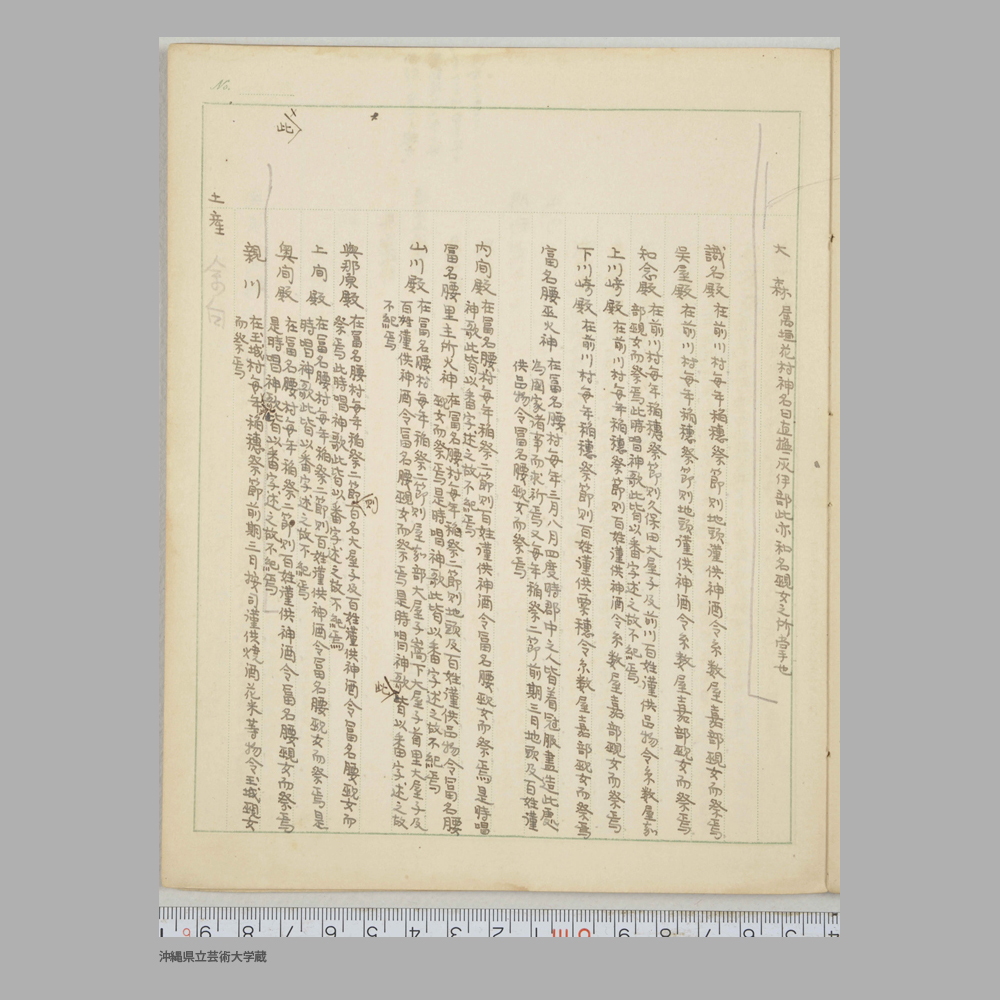 大森 属垣花村神名曰直[?]灰伊部此亦和名覡女之所掌也
識名殿 在前川村毎年稲穂祭節則地頭謹供神酒令糸数屋嘉部覡女而祭焉
呉屋殿 在前川村毎年稲穂祭節則地頭謹供神酒令糸数屋嘉部覡女而祭焉
知念殿 在前川村毎年稲穂祭節則久保田大屋子及前川百姓謹供品物令糸数屋嘉
部覡女而祭焉此時唱神歌此皆以番字述之故不紀焉
上川崎殿 在前川村毎年稲穂祭節則百姓謹供神酒令糸数屋嘉部覡女而祭焉
下川崎殿 在前川村毎年稲穂祭節則百姓謹供粟穂令糸数屋嘉部覡女而祭焉
富名腰巫火神 在富名腰村毎年三月八月四度時郡中之人皆着冠服盡造此處
為国家有事而祈焉又毎年稲祭二節前期三日地頭及百姓謹
供品物令冨名腰覡女而祭焉
内間殿 在冨名腰村毎年稲祭二節則百姓謹供神酒令冨名腰覡女而祭焉是時唱
神歌此皆以番字述之故不紀焉
冨名腰里主所火神 在冨名腰村毎年稲祭二節則地頭及百姓謹供品物令冨名腰
覡女而祭焉是時唱神歌此皆以番字述之故不紀焉
山川殿 在冨名腰村毎年稲祭二節則屋嘉部大屋子嵩下大屋子首里大屋子及
百姓謹供神酒令冨名腰覡女而祭焉是時唱神歌此皆以番字述之故
不紀焉
與那原殿 在冨名腰村毎年稲祭二節則百名大屋子及百姓謹供神酒令冨名腰覡女而
祭焉此時唱神歌此皆以番字述之故不紀焉
上間殿 在冨名腰村毎年稲祭二節則百姓謹供神酒令冨名腰覡女而祭焉是
時唱神歌此皆以番字述之故不紀焉
奥間殿 在冨名腰村毎年稲祭二節則百姓謹供神酒令冨名腰覡女而祭焉
是時唱神歌此皆以番字述之故不紀焉
親川 在玉城村毎年稲穂祭節前期三日按司謹供焼酒花米等物令玉城覡女
而祭焉
土産
No.
沖縄県立芸術大学蔵